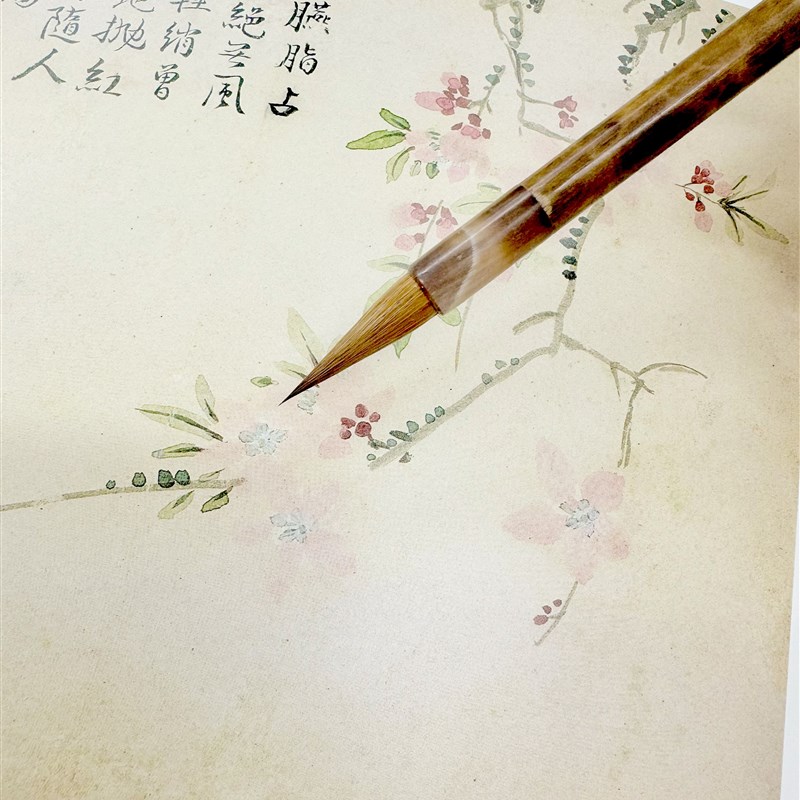 臙脂占
絕風
輕綃曾
抛紅
隨人